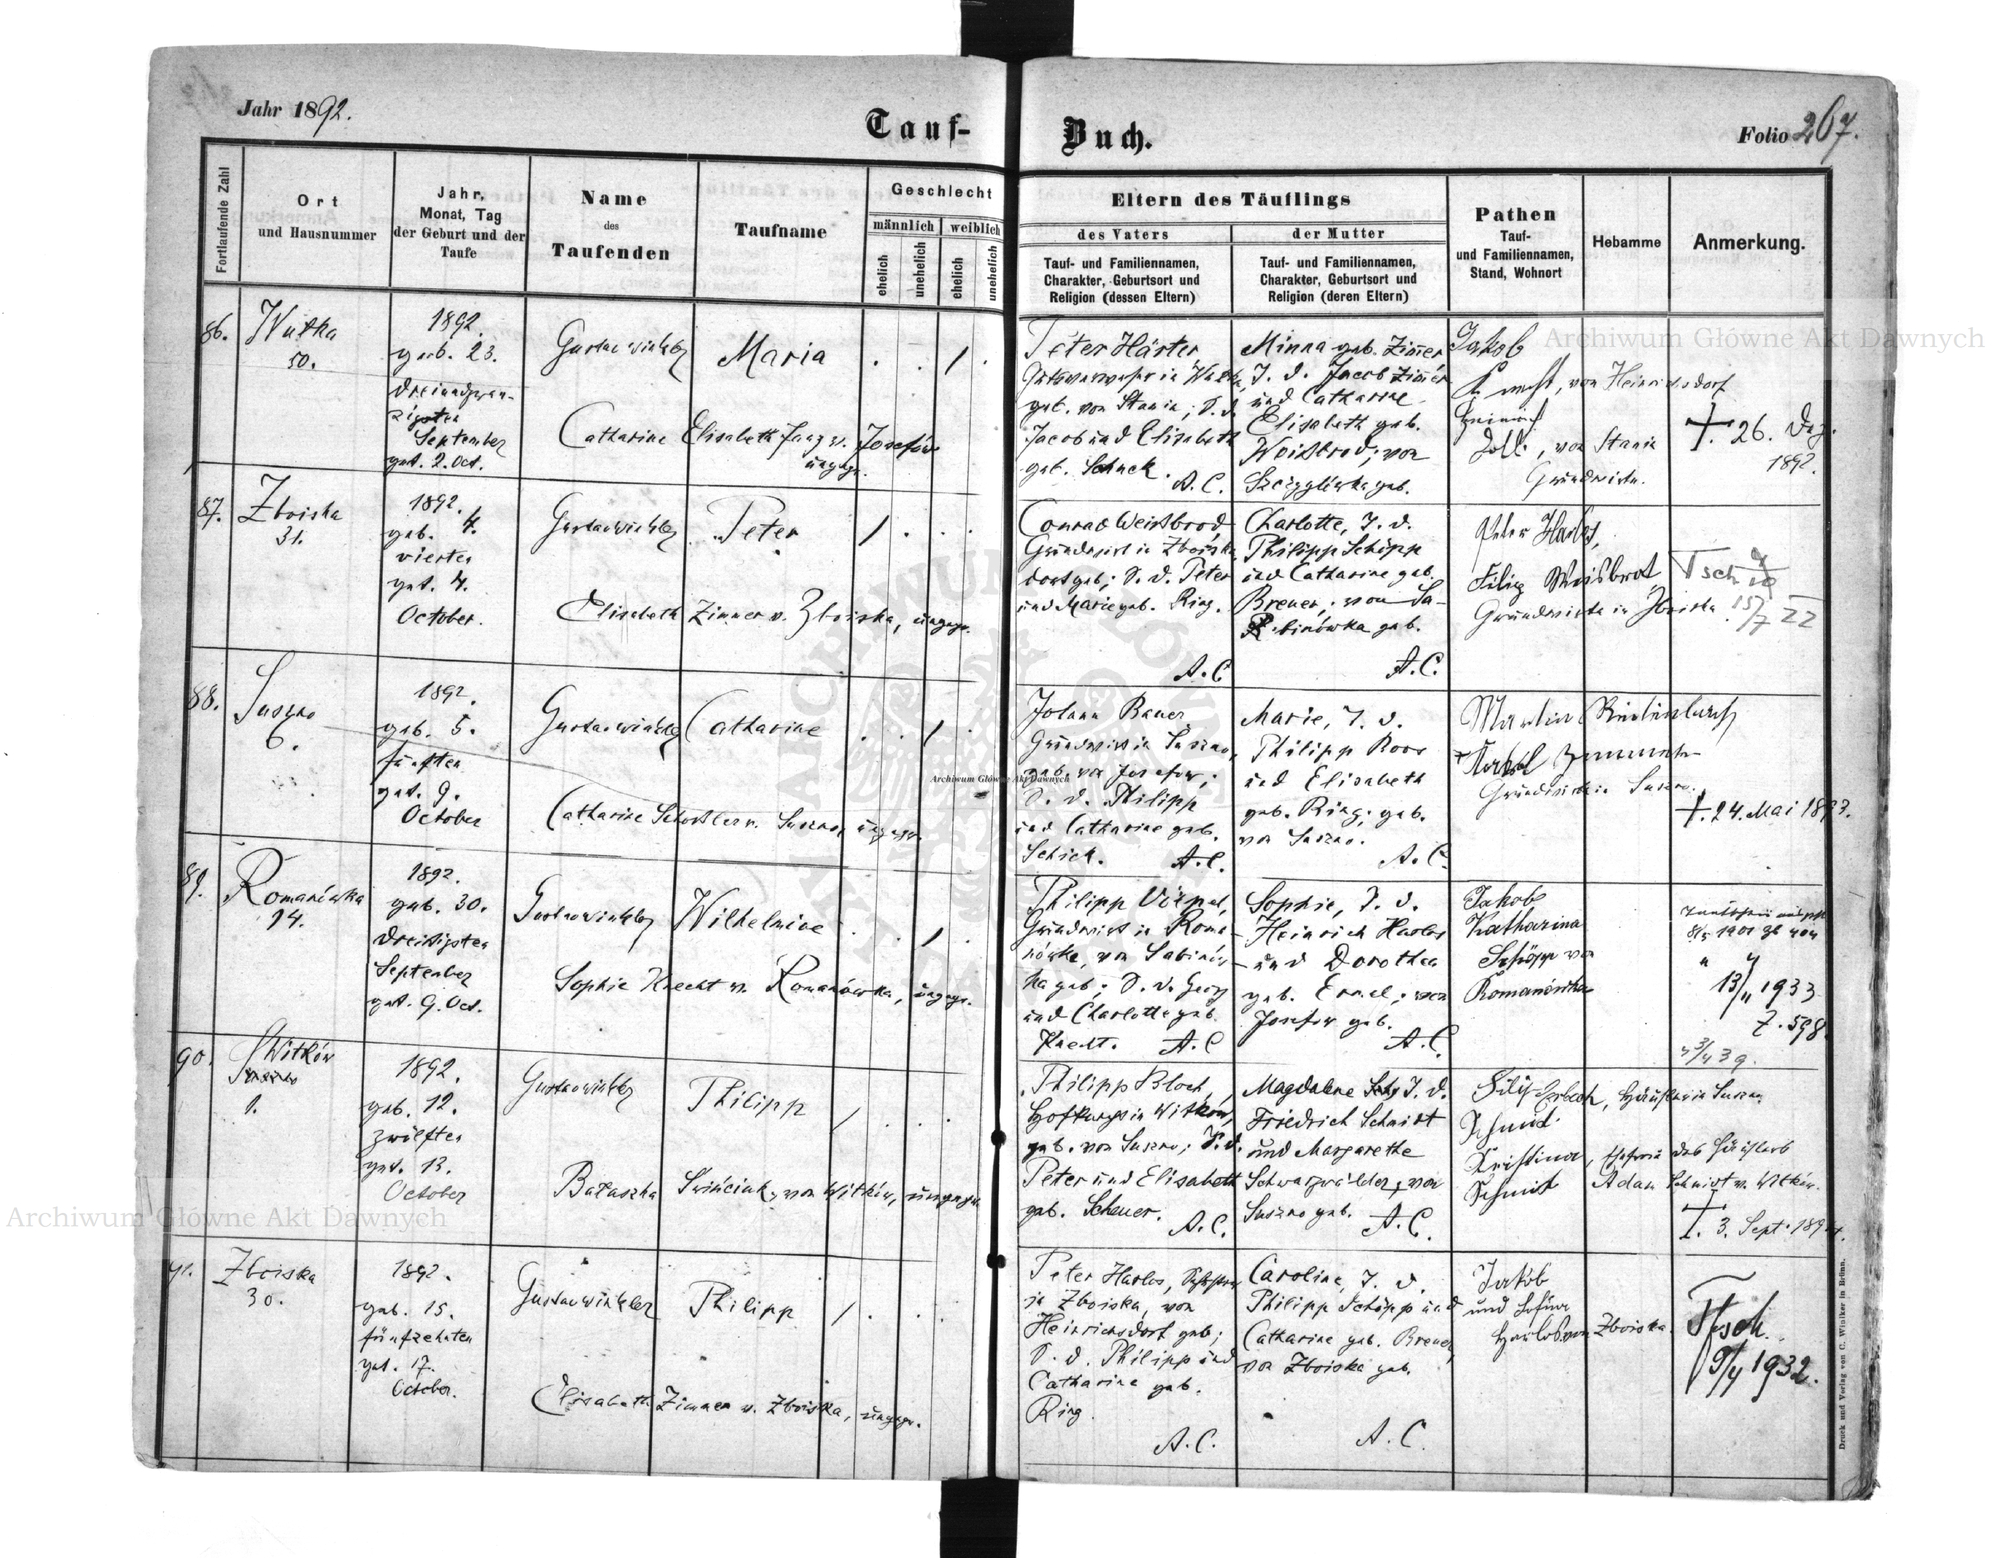 Jahr 1892.
Tauf-
Buch.
Folio 267.
Fortlaufende Zahl
Ort
und Hausnummer
Jahr,
Monat, Tag
der Geburt und der
Taufe
Name
des
Taufenden
Taufname
Geschlecht
männlich
weiblich
ehelich
unehelich
ehelich
unehelich
Eltern des Täuflings
des Vaters
Tauf- und Familiennamen,
Charakter, Geburtsort und
Religion (dessen Eltern)
der Mutter
Tauf- und Familiennamen,
Charakter, Geburtsort und
Religion (deren Eltern)
Pathen
Tauf-
und Familiennamen,
Stand, Wohnort
Hebamme
Anmerkung.
86.
50.
1892.
geb. 23.
dreiundzwan-
zigsten
September
get. 2. Oct.
Gustav Winkler
Maria
Catharine Elisabeth v. Josefów
ungepr.
Peter Härter
geb. von Stania; S. d.
Jacob und Elisabeth
geb. Schuck.
A. C.
Minna geb. Zimer
T. d. Jacob Zimer
und Catharine
Elisabeth geb.
Weißbrod; von
geb.
Jakob
Knecht, von Heinrichsdorf
Heinrich
von Stania
Grundwirte.
†. 26. Dez.
1892.
87.
Zboiska
31.
1892.
geb. 4.
vierten
get. 4.
October.
Gustav Winkler
Peter
Elisabeth Zimmer v. Zboiska, ungepr.
Conrad Weißbrod,
Grundwirt in Zboiska
dort geb; S. d. Peter
und Marie geb. Ring.
A. C.
Charlotte, T. d.
Philipp Schöpp
und Catharine geb.
Brener; von Sa-
binówka geb.
A. C.
Peter Harlos,
Filip Weisbrot
Grundwirte in Zboiska
Tsch
15/7
88.
Suszno
6.
1892.
geb. 5.
fünften
get. 9.
October
Gustav Winkler
Catharine
Catharine v. Suszno, ungepr.
Johann Bauer
Grundwirt in Suszno,
geb. von Josefow;
S. d. Philipp
und Catharine geb.
Schick. A. C.
Marie, T. d.
Philipp Roos
und Elisabeth
geb. Ring; geb.
von Suszno.
A. C.
Martin
Grundwirte in Suszno.
†. 24. Mai 1893.
89.
Romanówka
14.
1892.
geb. 30.
dreißigsten
September
get. 9. Oct.
Gustav Winkler
Wilhelmine
Sophie Knecht v. Romanówka, ungepr.
Philipp
Grundwirt in Roma-
nówka, von Sabinów-
ka geb; S. d. Georg
und Charlotte geb.
Knecht. A. C
Sophie, T. d.
Heinrich Harlos
und Dorothea
geb. von
Josefow geb.
A. C.
Jakob,
Katharina
Schöpp von
Romanówka
13/11 1933
Z. 598
90.
Witków
1.
1892.
geb. 12.
zwölften
get. 13.
October
Gustav Winkler
Philipp
von Witków, ungepr.
Philipp Bloch,
in Witkow,
geb. von Suszno; S. d.
Peter und Elisabeth
geb. Scheuer. A. C.
Magdalene T. d.
Friedrich Schmidt
und Margarethe
Schwarzwälder; von
Suszno geb. A. C.
Häusler in Suszno
Schmidt
Kristina, Ehefrau des Häuslers
Schmidt Adam Schmidt v. Witków.
†. 3. Sept.
91.
Zboiska
30.
1892.
geb. 15.
fünfzehnten
get. 17.
October.
Gustav Winkler
Philipp
Elisabeth Zimmer v. Zboiska, ungepr.
Peter Harlos,
in Zboiska, von
Heinrichsdorf geb;
S. d. Philipp und
Catharina geb.
Ring.
A. C.
Caroline, T. d.
Philipp Schöpp und
Catharine geb. Brener,
von Zboiska geb.
A. C.
Jakob
und
Harlos von Zboiska.
Tsch.
9/4 1932.
Druck und Verlag von C. Winiker in Brünn.
Archiwum Główne Akt Dawnych
Archiwum Główne Akt Dawnych
Archiwum Główne Akt Dawnych